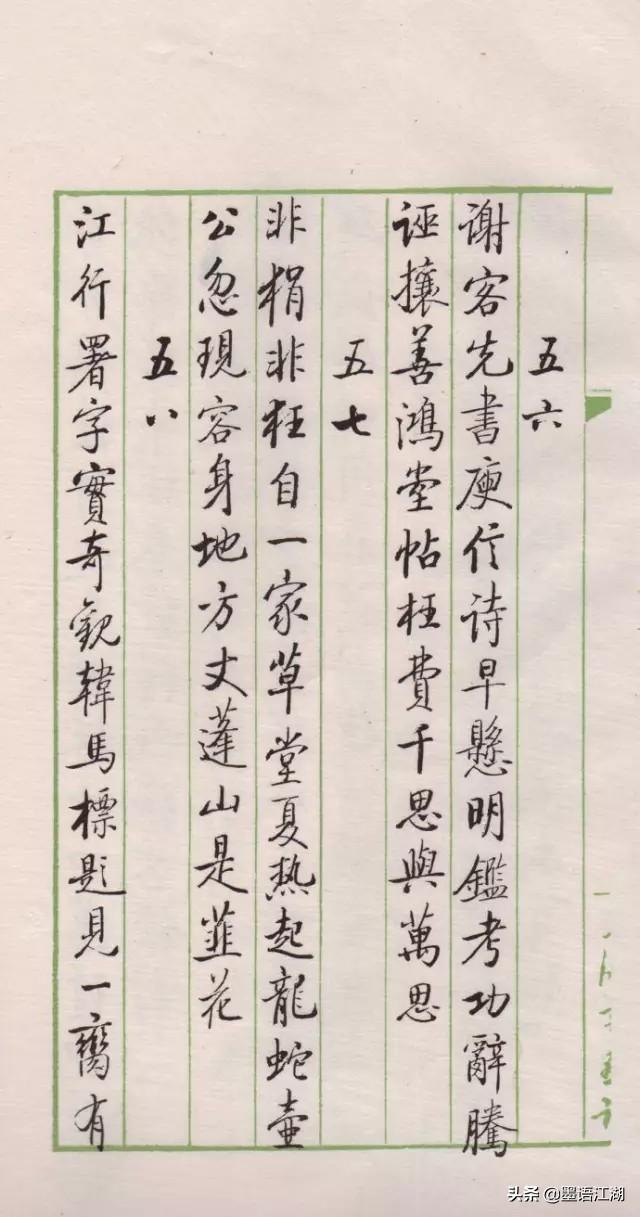 五六
谢客先書庾信诗早懸明鑑考功辭騰
诬攘善鴻堂帖枉費千思與萬思
五七
非狷非狂自一家草堂夏热起龍蛇壺
公忽現容身地方丈蓬山是韮花
五八
江行署字實奇觀韓馬標題見一臠有
头条 @墨语江湖